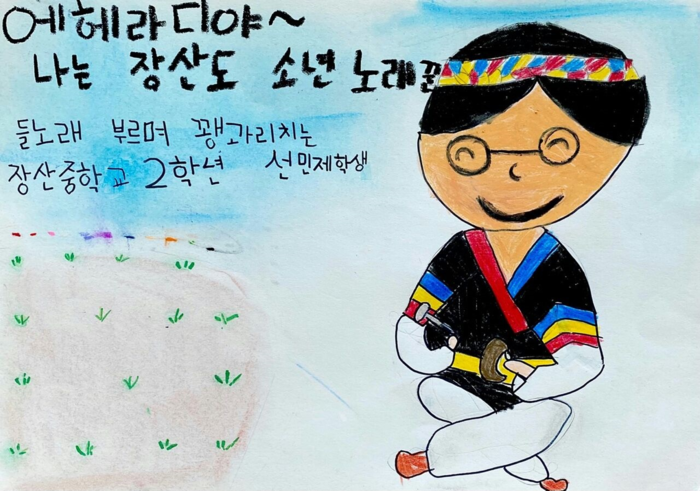 에헤라디야~
나는 장산도 소년 노래꾼
들노래 부르며 꽹과리치는
장산중학교 2학년 선민제학생